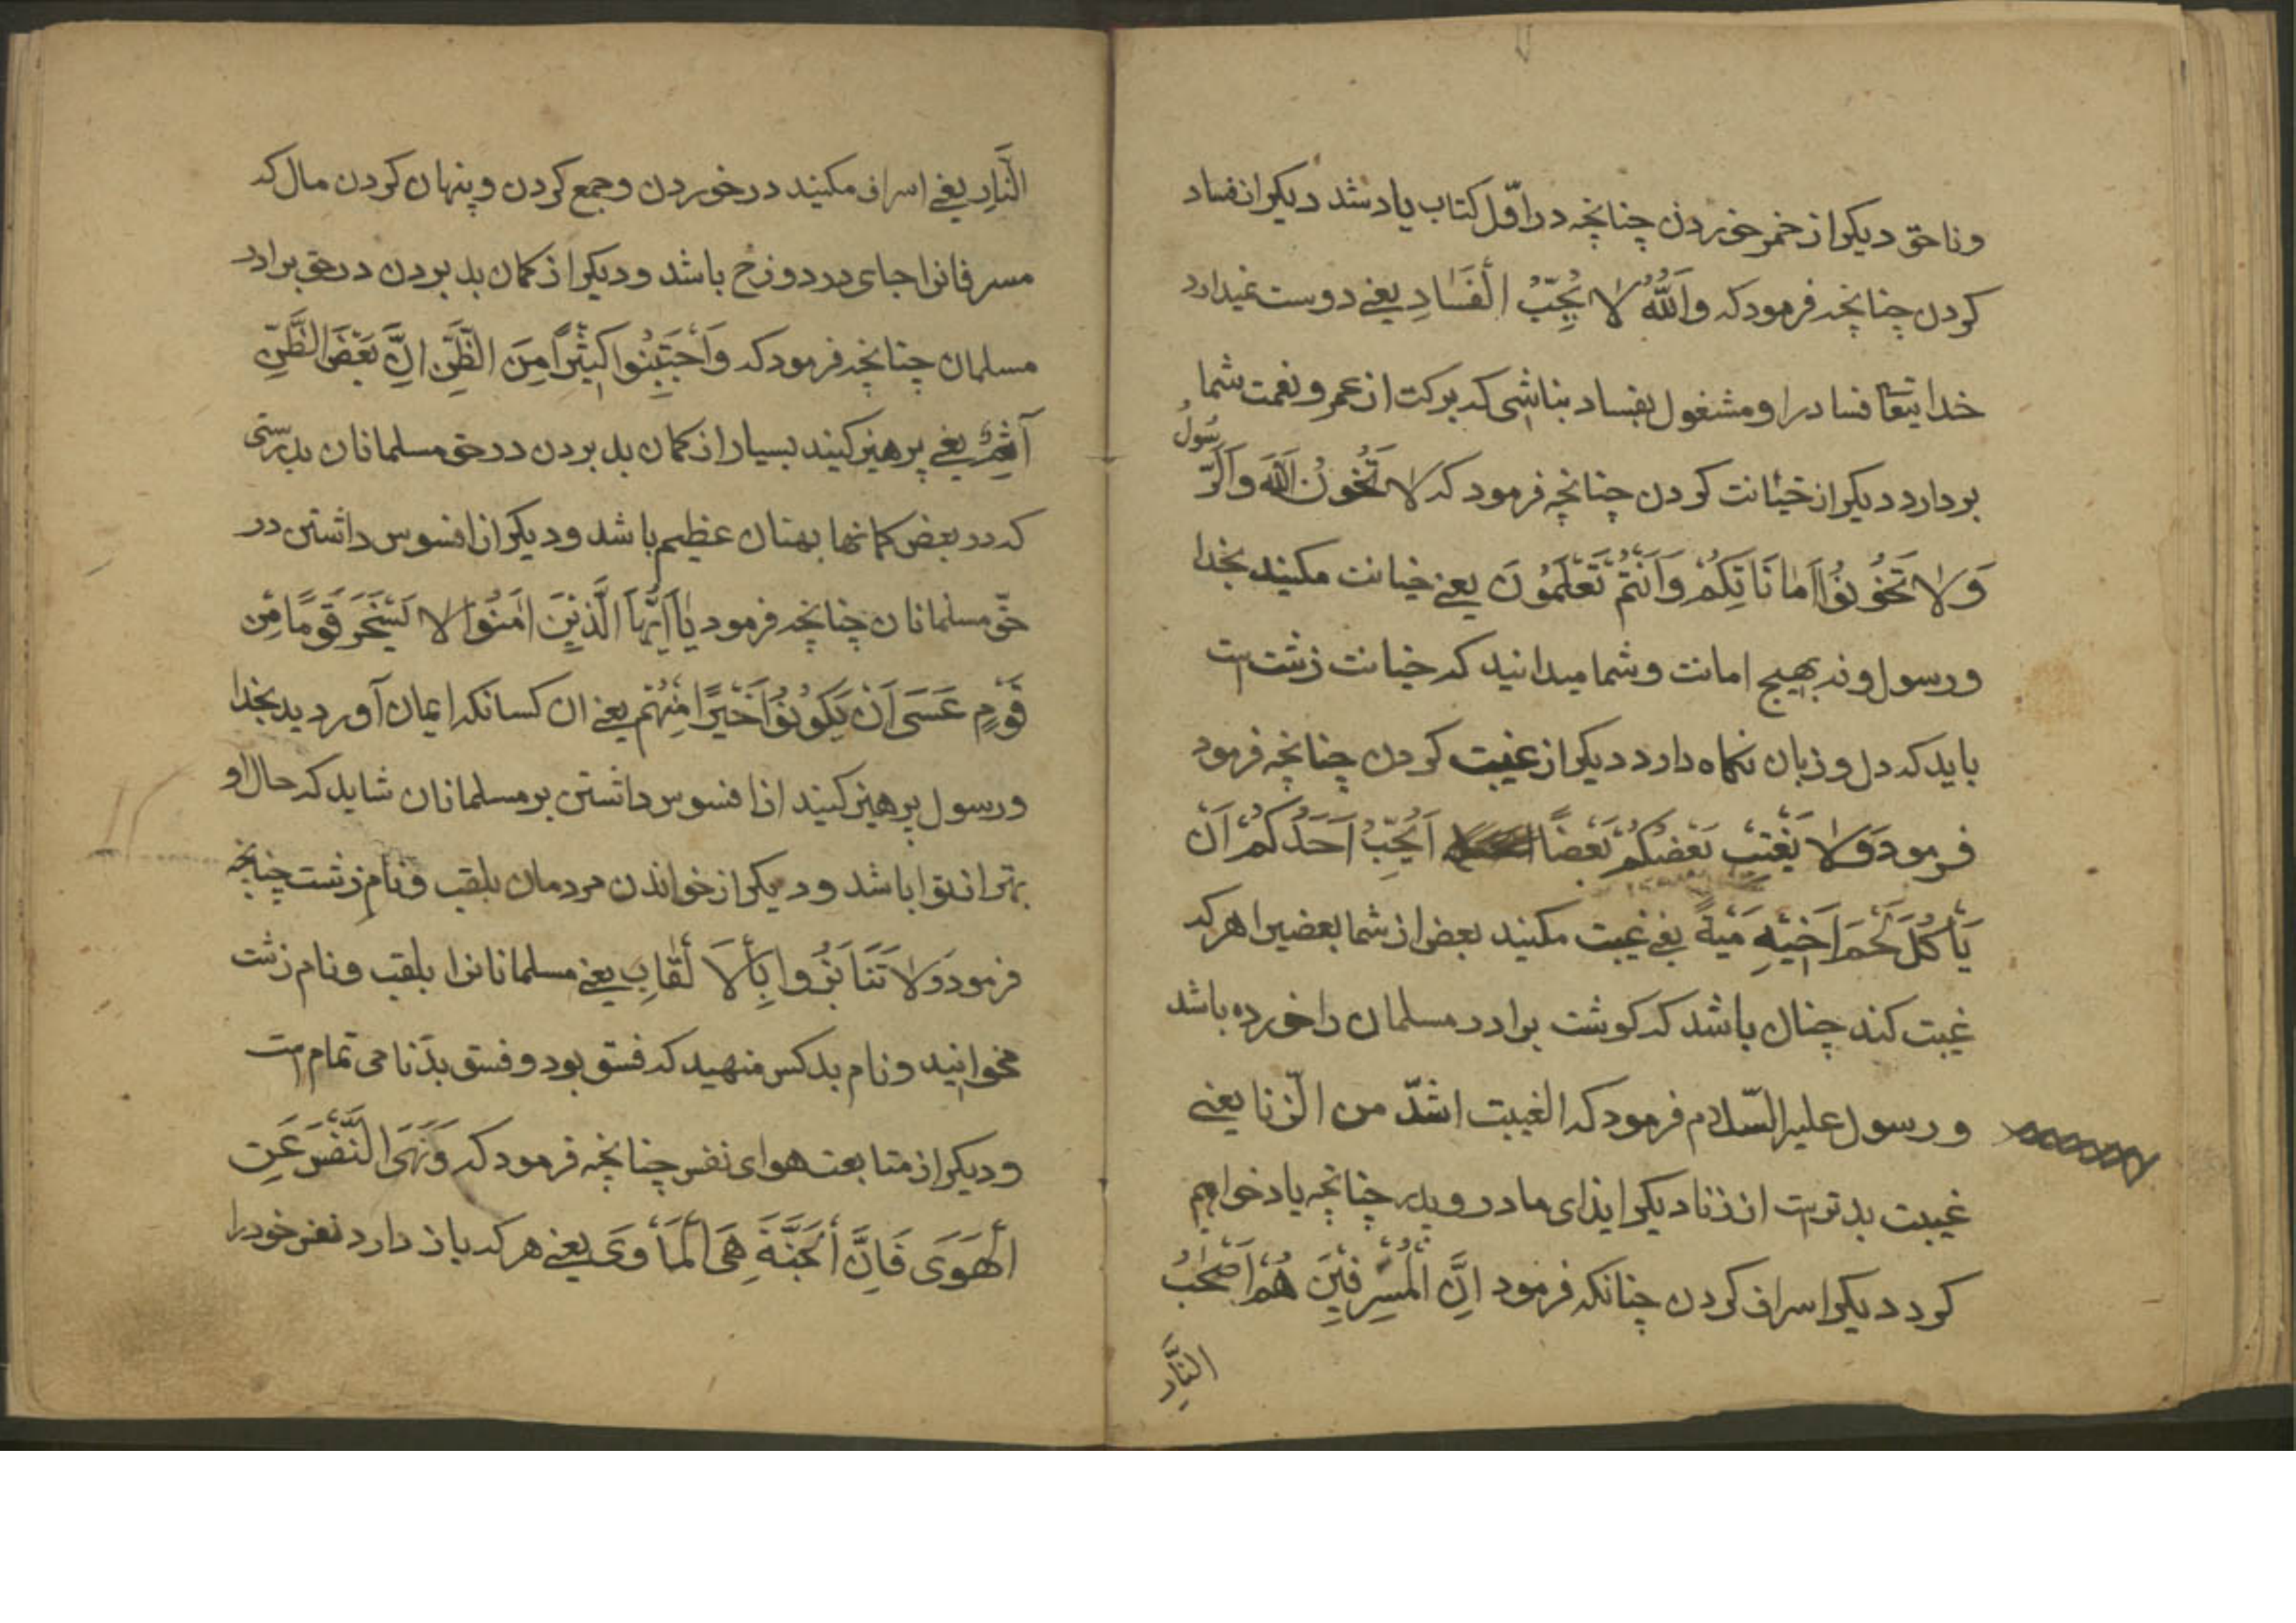 وناحق دیکر از خمر خوردن چنانچه در اوّل کتاب یاد شد دیکر از فساد
کردن چنانچه فرمود که وَاَللّٰهُ لاٰ یُحِبُّ اَلْفَسٰادِ یعنی دوست نمیدارد
خدایتعٰا فساد را و مشغول بفساد بناشی که برکت از عمر و نعمت شما
بردارد دیکر از خیٰانت کردن چنانچه فرمود که لاٰ تَخُونُ اللّٰهَ وَاَلرَّسُولُ
وَلاٰ تَخُونُوا اَمٰانَاتِکُمْ وَاَنْتُمْ تَعْلَمُونَ یعنی خیانت مکنید بخدا
و رسول و نه بهیچ امانت و شما میدانید که خیانت زشت است
باید که دل و زبان نکاه دارد دیکر از غیبت کردن چنانچه فرمود
فرمود وَلاٰ یَغْتِبْ بَعْضُکُمْ بَعْضًا اَیُحِبُّ اَحَدُکُمْ اَنْ
یَأکُلَ لَحْمَ اَخیٖهِ مَیْةً یعنی غیبت مکنید بعض از شما بعضیرا هر که
غیبت کند چنان باشد که کوشت برادر مسلمان را خورده باشد
و رسول علیه السّلام فرمود که الغیبت اشدّ من الزّنا یعنی
غیبت بدتر است از زنا دیکر ایذای مادر و پدر چنانچه یاد خواهیم
کرد دیکر اسراف کردن چنانکه فرمود اِنَّ اَلْمُسْرِفیٖنَ هُمْ اَصْحٰابُ
النّٰارِ
النَّارِ یعنی اسراف مکنید در خوردن و جمع کردن و پنهان کردن مال که
مسرفانرا جای در دوزخ باشد و دیکر از کمان بد بردن در حق برادر
مسلمان چنانچه فرمود که وَاَجْتَنِبُوا کَثیٖرًا مِنَ الظَّنِّ اِنَّ بَعْضَ الظَّنِّ
اِثْمٌ یعنی پرهیز کنید بسیار از کمان بد بردن در حق مسلمانان بدرستی
که در بعض کمانها بهتان عظیم باشد و دیکر از افسوس داشتن در
حقّ مسلمانان چنانچه فرمود یٰا اَیُّهَا الَّذیٖنَ اٰمَنُوا لاٰ یَسْخَرَ قَومًا مِنْ
قَوْمٍ عَسَی اَنْ یَکُونُوا خَیْرًا مِنْهُمْ یعنی ان کسانکه ایمان آوردید بخدا
و رسول پرهیز کنید از افسوس داشتن بر مسلمانان شاید که حال او
بهتر از تو باشد و دیکر از خواندن مردمان بلقب و نام زشت چنانچه
فرمود وَلاٰ تَنَابَزُوا بِاَلْاَ لْقٰابِ یعنی مسلمانانرا بلقب و نام زشت
مخوانید و نام بد کس منهید که فسق بود و فسق بدنامی تمام است
و دیکر از متابعت هوای نفس چنانچه فرمود که وَنَهَی النَّفْسَ عَنِ
اَلْهَوَی فَاِنَّ اَلْجَنَّةَ هِیَ اَلْمَأْوَی یعنی هر که باز دارد نفس خود را